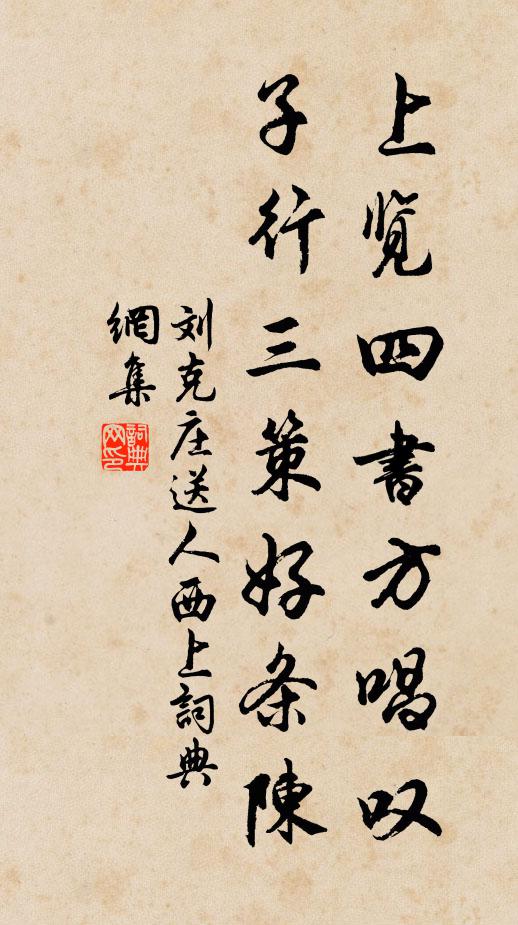 上览四書方唱叹
子行三策好条陳
刘克庄送人西上詞典
網集
詞典網印